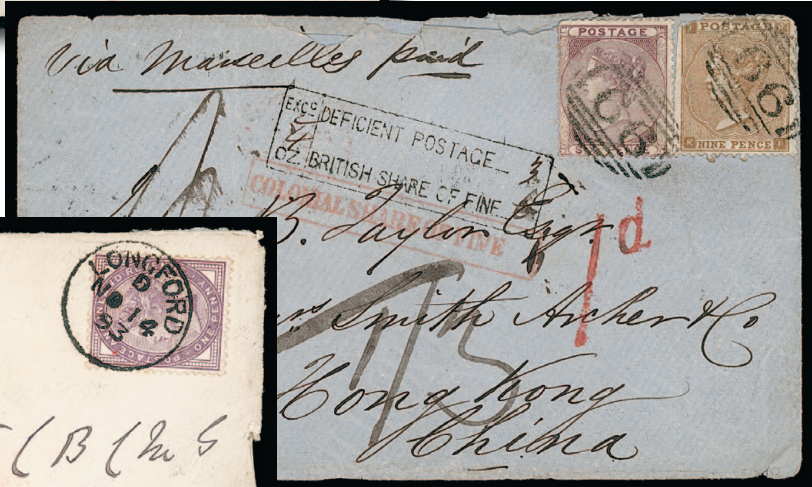 via Marseilles paid
POSTAGE
POSTAGE
NINE PENCE
EXCS DEFICIENT POSTAGE
OZ. BRITISH SHARE OF FINE
COLONIAL SHARE OF FINE
B. Taylor Esqr.
1/d
Smith Archer & Co
Hong Kong
China
LONGFORD
D
NO 14
93